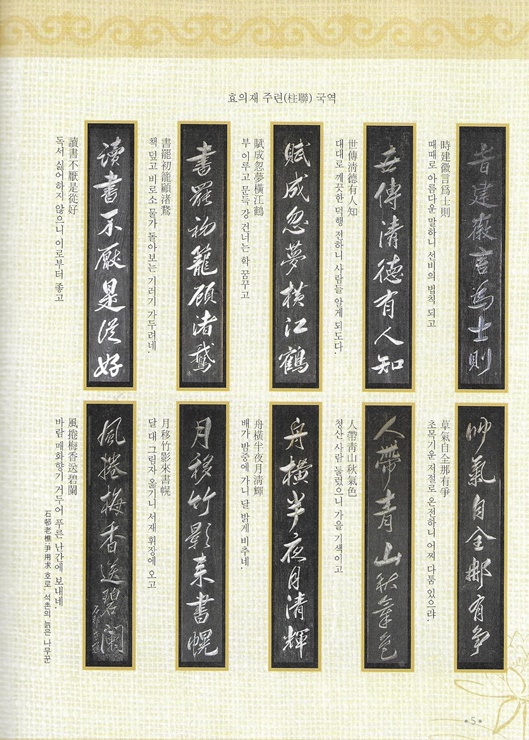 효의재 주련(柱聯) 국역
旹建徽言為士則
時建徽言爲士則
때때로 아름다운 말하니 선비의 법칙 되고
世傳清德有人知
世傳淸德有人知
대대로 깨끗한 덕행 전하니 사람들 알게 되도다.
賦成忽夢橫江鶴
賦成忽夢橫江鶴
부 이루고 문득 강 건너는 학 꿈꾸고
書罷初籠顧渚鵞
書罷初籠顧渚鵞
책 덮고 비로소 물가 돌아보는 기러기 가두려네.
讀書不厭是從好
讀書不厭是從好
독서 싫어하지 않으니 이로부터 좋고
艸氣自全那有爭
草氣自全那有爭
초목기운 저절로 온전하니 어찌 다툼 있으랴.
人帶青山秋氣色
人帶靑山秋氣色
청산 사람 둘렀으니 가을 기색이고
舟橫半夜月清輝
舟橫半夜月淸輝
배가 밤중에 가니 달 밝게 비추네.
月移竹影来書幌
月移竹影來書幌
달 대 그림자 옮기니 서재 휘장에 오고
風捲梅香送碧闌
風捲梅香送碧闌
바람 매화향기 거두어 푸른 난간에 보내네.
石邨老樵尹用求 호로, 석촌의 늙은 나무꾼
5